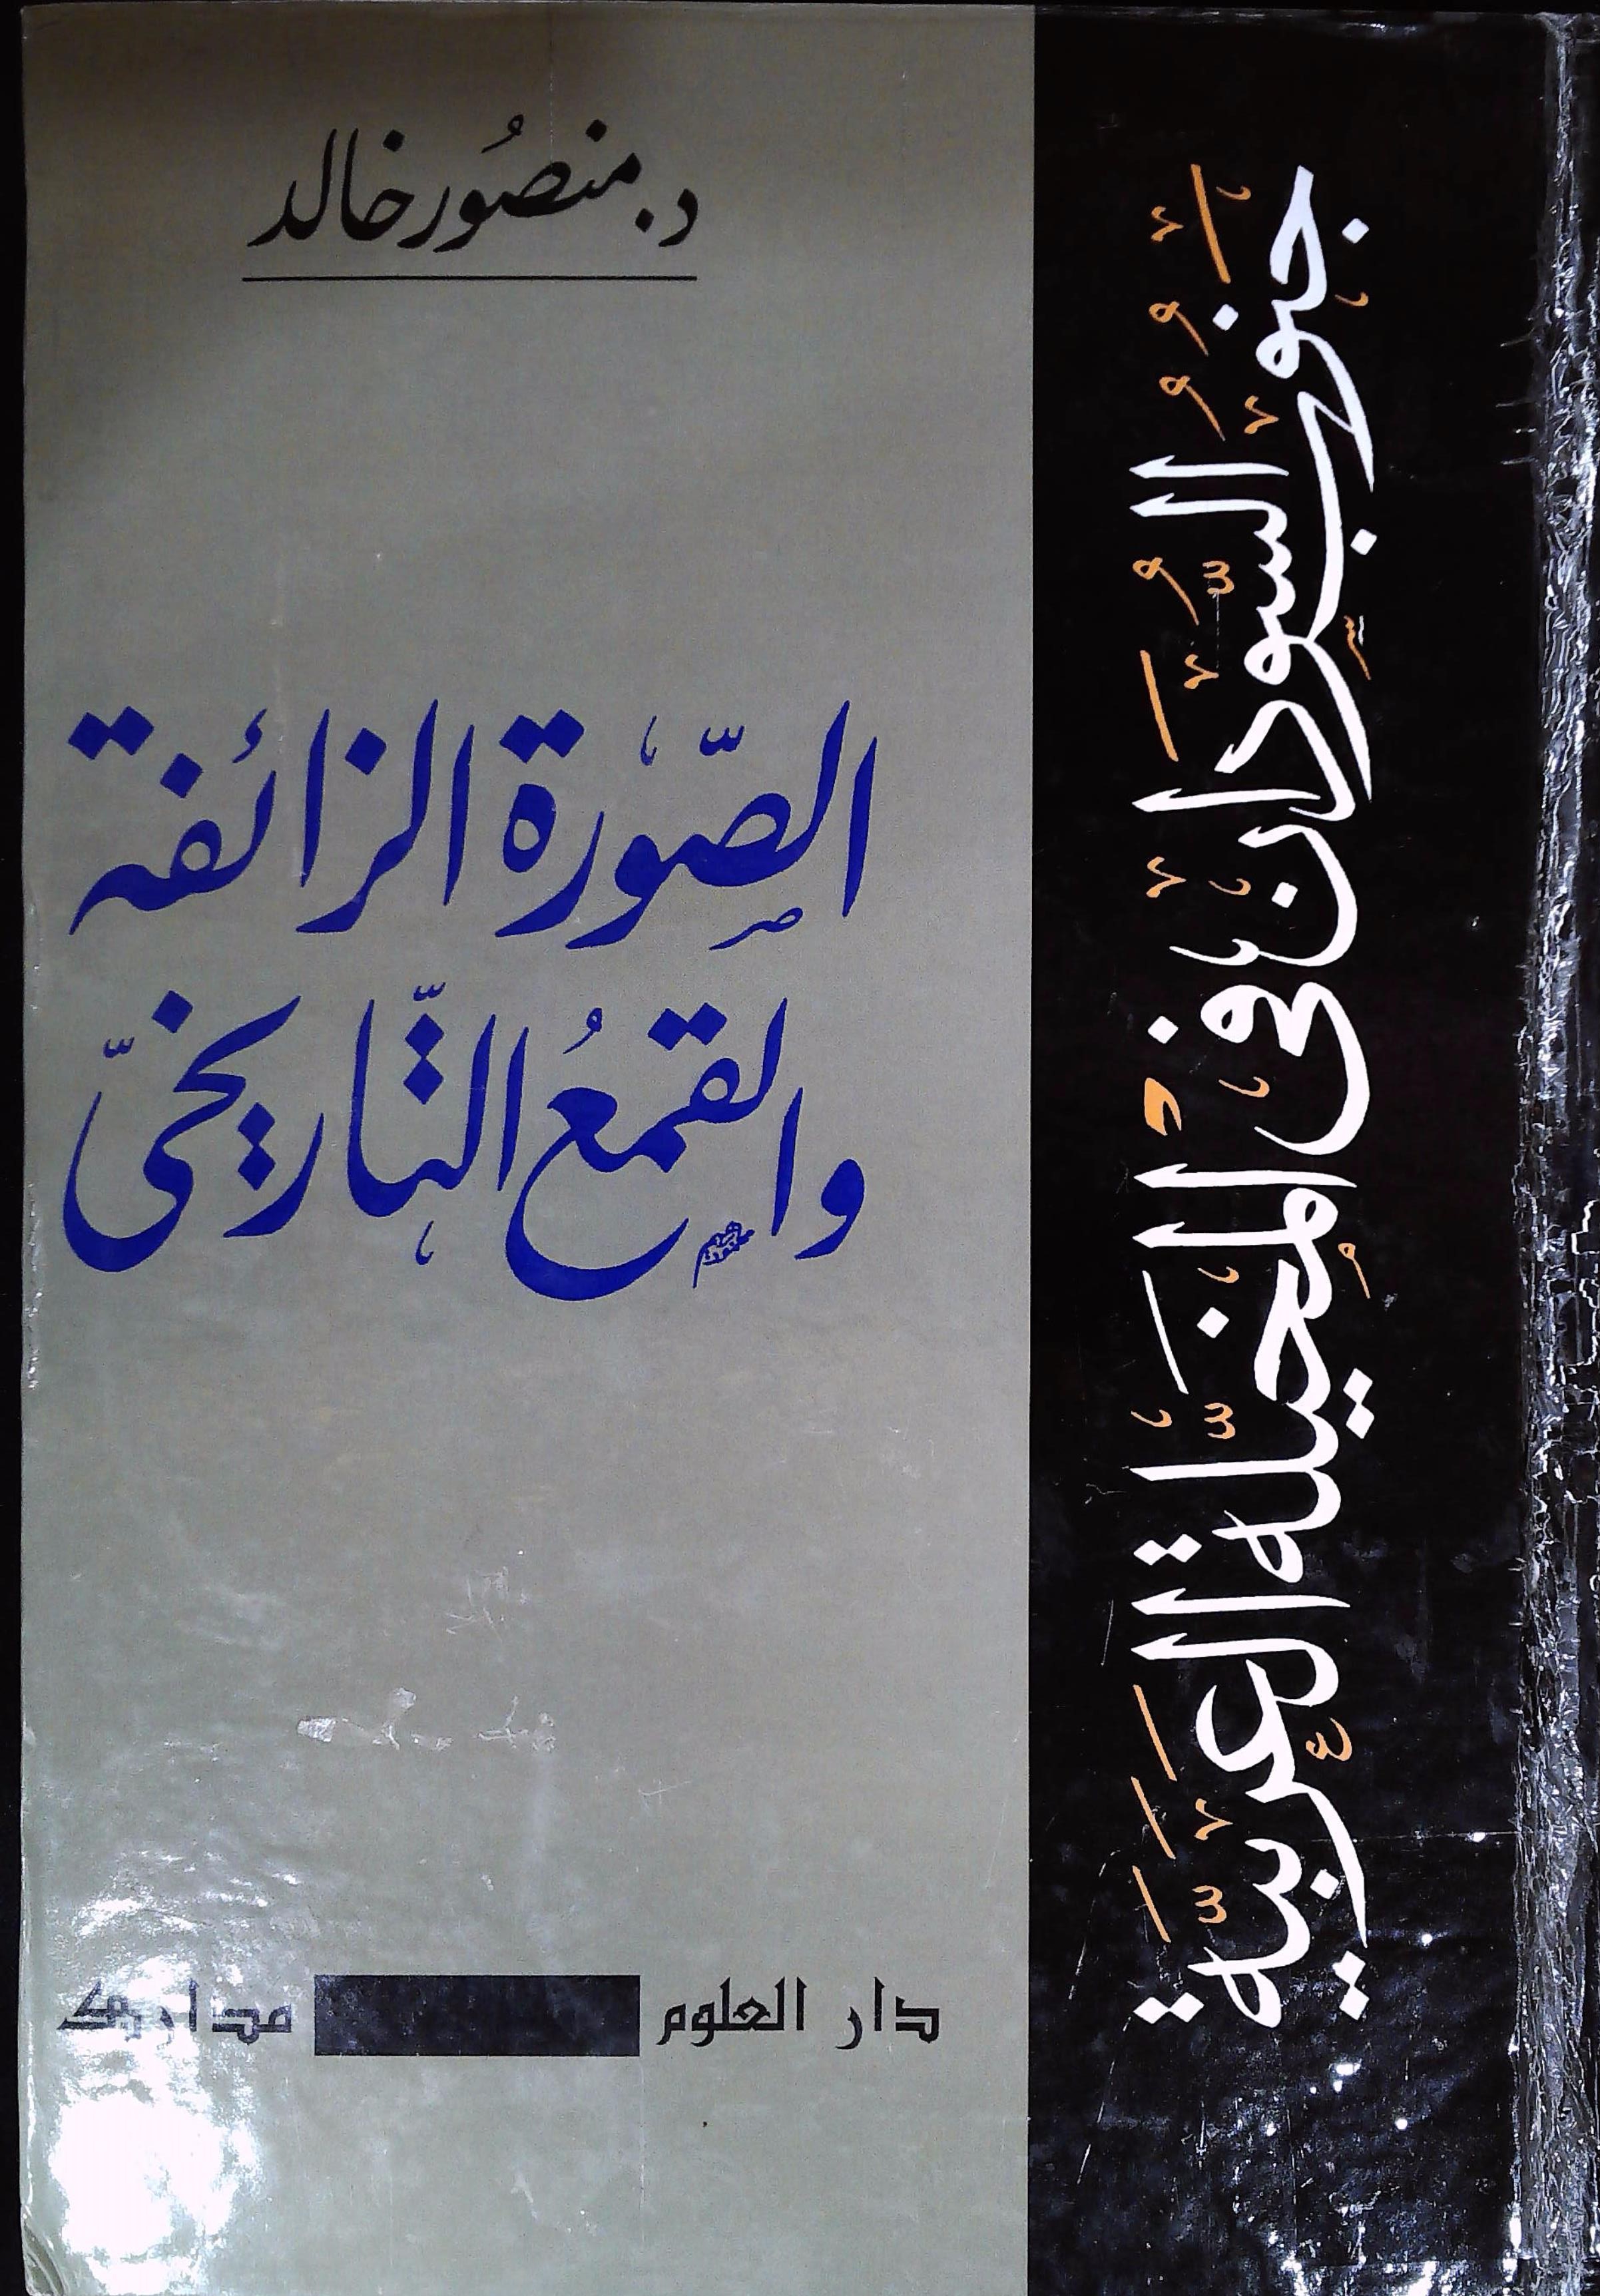 د. منصُور خالد
جنوب السودان في المخيلة العربية
الصّورة الزائفة
والقمعُ التّاريخيّ
دار العلوم
مدارك